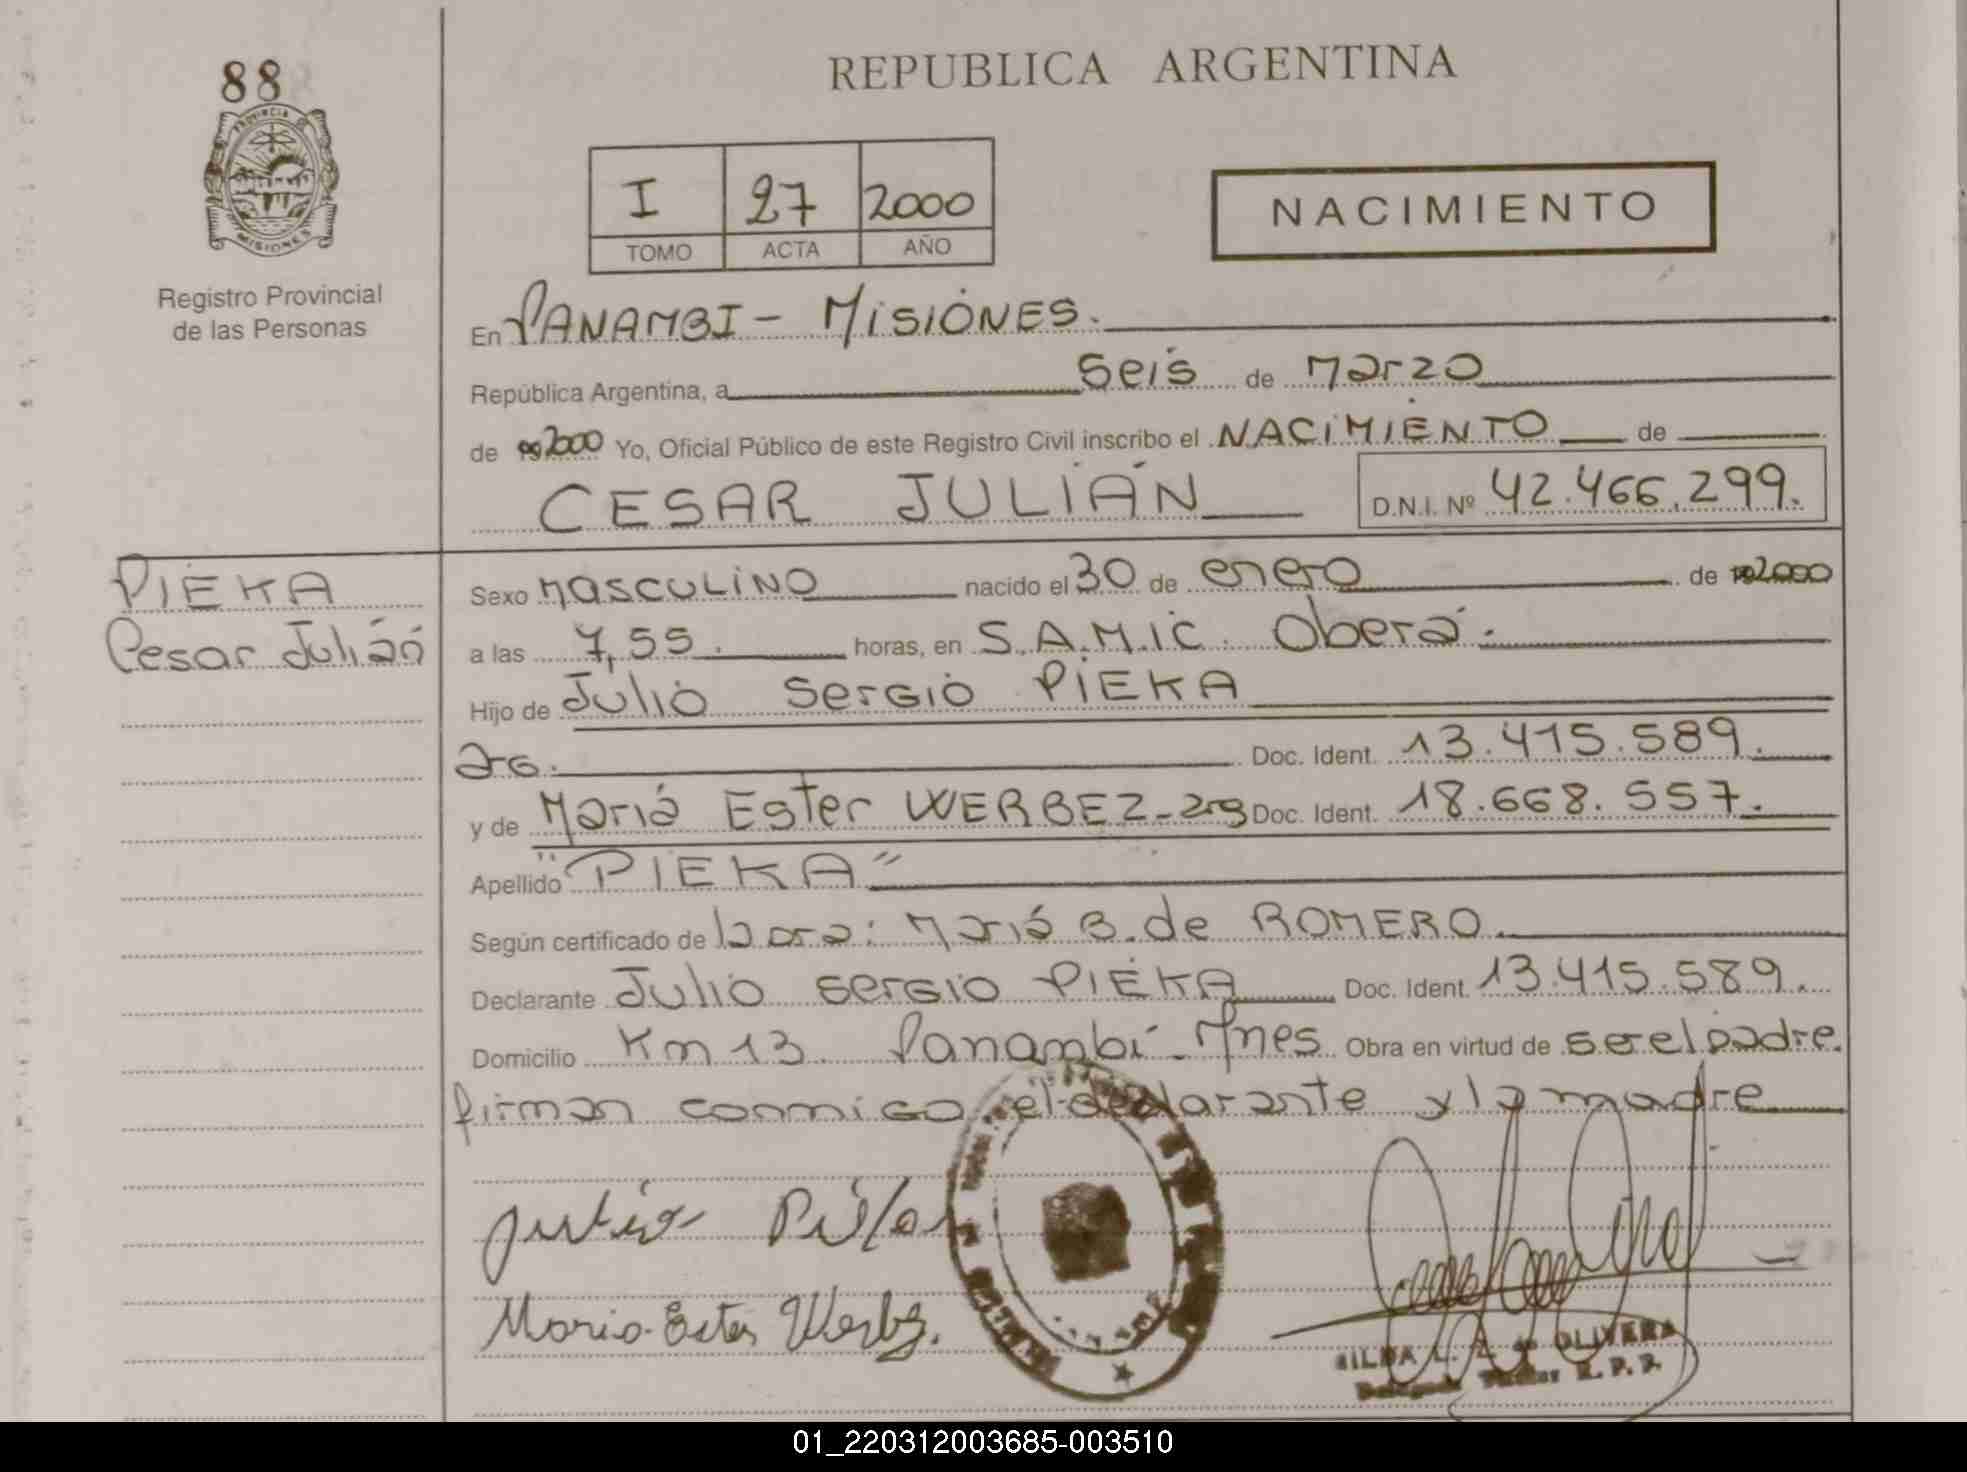 88
PROVINCIA
MISIONES
Registro Provincial
de las Personas
REPUBLICA ARGENTINA
I 27 2000
TOMO ACTA AÑO
NACIMIENTO
En PANAMBI - MISIONES.
República Argentina, a seis de Marzo
de 2000 Yo, Oficial Público de este Registro Civil inscribo el NACIMIENTO de
CESAR JULIÁN D.N.I. Nº 42.466.299.
PIEKA
Cesar Julián
Sexo MASCULINO nacido el 30 de enero de 2000
a las 7,55. horas, en S.A.M.I.C. Oberá.
Hijo de Julio Sergio PIEKA
arg. Doc. Ident. 13.415.589.
y de Mariá Ester WERBEZ - arg Doc. Ident. 18.668.557.
Apellido "PIEKA"
Según certificado de la dra: Mariá B. de ROMERO.
Declarante Julio Sergio PIEKA Doc. Ident. 13.415.589.
Domicilio Km 13 Panambí - Mnes Obra en virtud de ser el padre.
firman conmigo el declarante y la madre
Maria Ester Werbez.
OLIVERA
R. P. P.
01_220312003685-003510